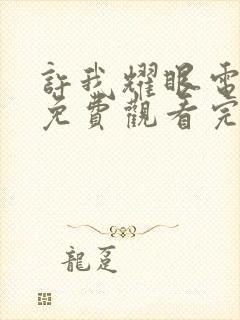 許我耀眼電
免費觀看完
龍趸